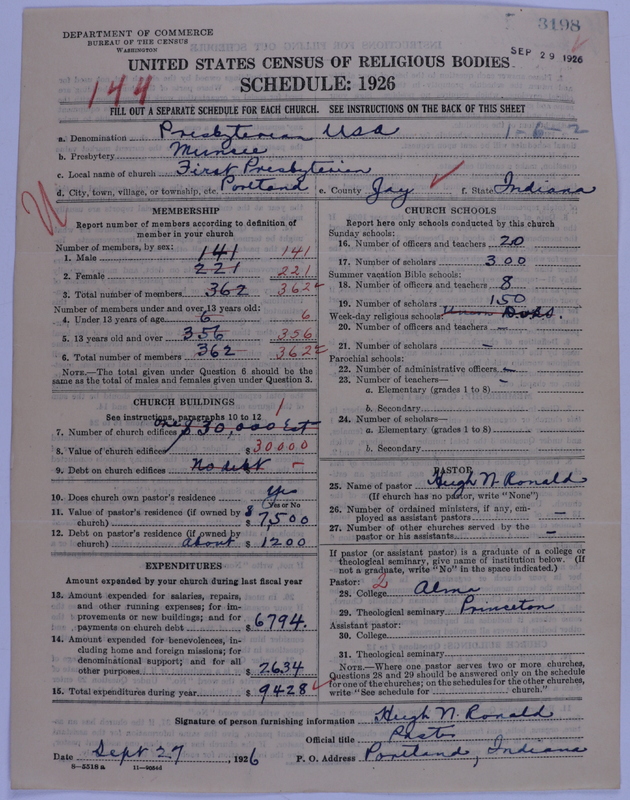 3198
DEPARTMENT OF COMMERCE
BUREAU OF THE CENSUS
WASHINGTON
SEP 29 1926
UNITED STATES CENSUS OF RELIGIOUS BODIES
SCHEDULE: 1926
144
FILL OUT A SEPARATE SCHEDULE FOR EACH CHURCH. SEE INSTRUCTIONS ON THE BACK OF THIS SHEET
a. Denomination Presbyterian USA 1-6-2
b. Presbytery Muncie
c. Local name of church First Presbyterian
d. City, town, village, or township, etc. Portland e. County Jay f. State Indiana
MEMBERSHIP
Report number of members according to definition of
member in your church
Number of members, by sex:
1. Male 141 141
2. Female 221 221
3. Total number of members 362 362
Number of members under and over 13 years old:
4. Under 13 years of age 6 6
5. 13 years old and over 356 356
6. Total number of members 362 362
NOTE.—The total given under Question 6 should be
the same as the total of males and females given under Question 3.
CHURCH BUILDINGS
See instructions, paragraphs 10 to 12
7. Number of church edifices one 1
8. Value of church edifices $30,000 Est $30000
9. Debt on church edifices No debt $ -
10. Does church own pastor's residence Yes
(Yes or No)
11. Value of pastor's residence (if owned by
church) $ 7,500
12. Debt on pastor's residence (if owned by
church) about $ 1200
EXPENDITURES
Amount expended by your church during last fiscal year
13. Amount expended for salaries, repairs,
and other running expenses; for im-
provements or new buildings; and for
payments on church debt $ 6794.
14. Amount expended for benevolences, in-
cluding home and foreign missions; for
denominational support; and for all
other purposes $ 2634
15. Total expenditures during year $ 9428
CHURCH SCHOOLS
Report here only schools conducted by this church
Sunday schools:
16. Number of officers and teachers 20
17. Number of scholars 300
Summer vacation Bible schools:
18. Number of officers and teachers 8
19. Number of scholars 150
Week-day religious schools:
20. Number of officers and teachers —
21. Number of scholars —
Parochial schools:
22. Number of administrative officers —
23. Number of teachers— —
a. Elementary (grades 1 to 8)
b. Secondary
24. Number of scholars—
a. Elementary (grades 1 to 8)
b. Secondary
PASTOR
25. Name of pastor Hugh N. Ronald
(If church has no pastor, write "None")
26. Number of ordained ministers, if any, em-
ployed as assistant pastors —
27. Number of other churches served by the
pastor or his assistants —
If pastor (or assistant pastor) is a graduate of a college or
theological seminary, give name of institution below. (If
not a graduate, write "No" in the space indicated.)
Pastor: 2
28. College Alma
29. Theological seminary Princeton
Assistant pastor:
30. College
31. Theological seminary
NOTE.—Where one pastor serves two or more churches,
Questions 28 and 29 should be answered only on the schedule
for one of the churches; on the schedules for the other churches,
write "See schedule for church."
Signature of person furnishing information Hugh N. Ronald
Official title Pastor
Date Sept 27, 1926 P. O. Address Portland, Indiana
8-5518 a